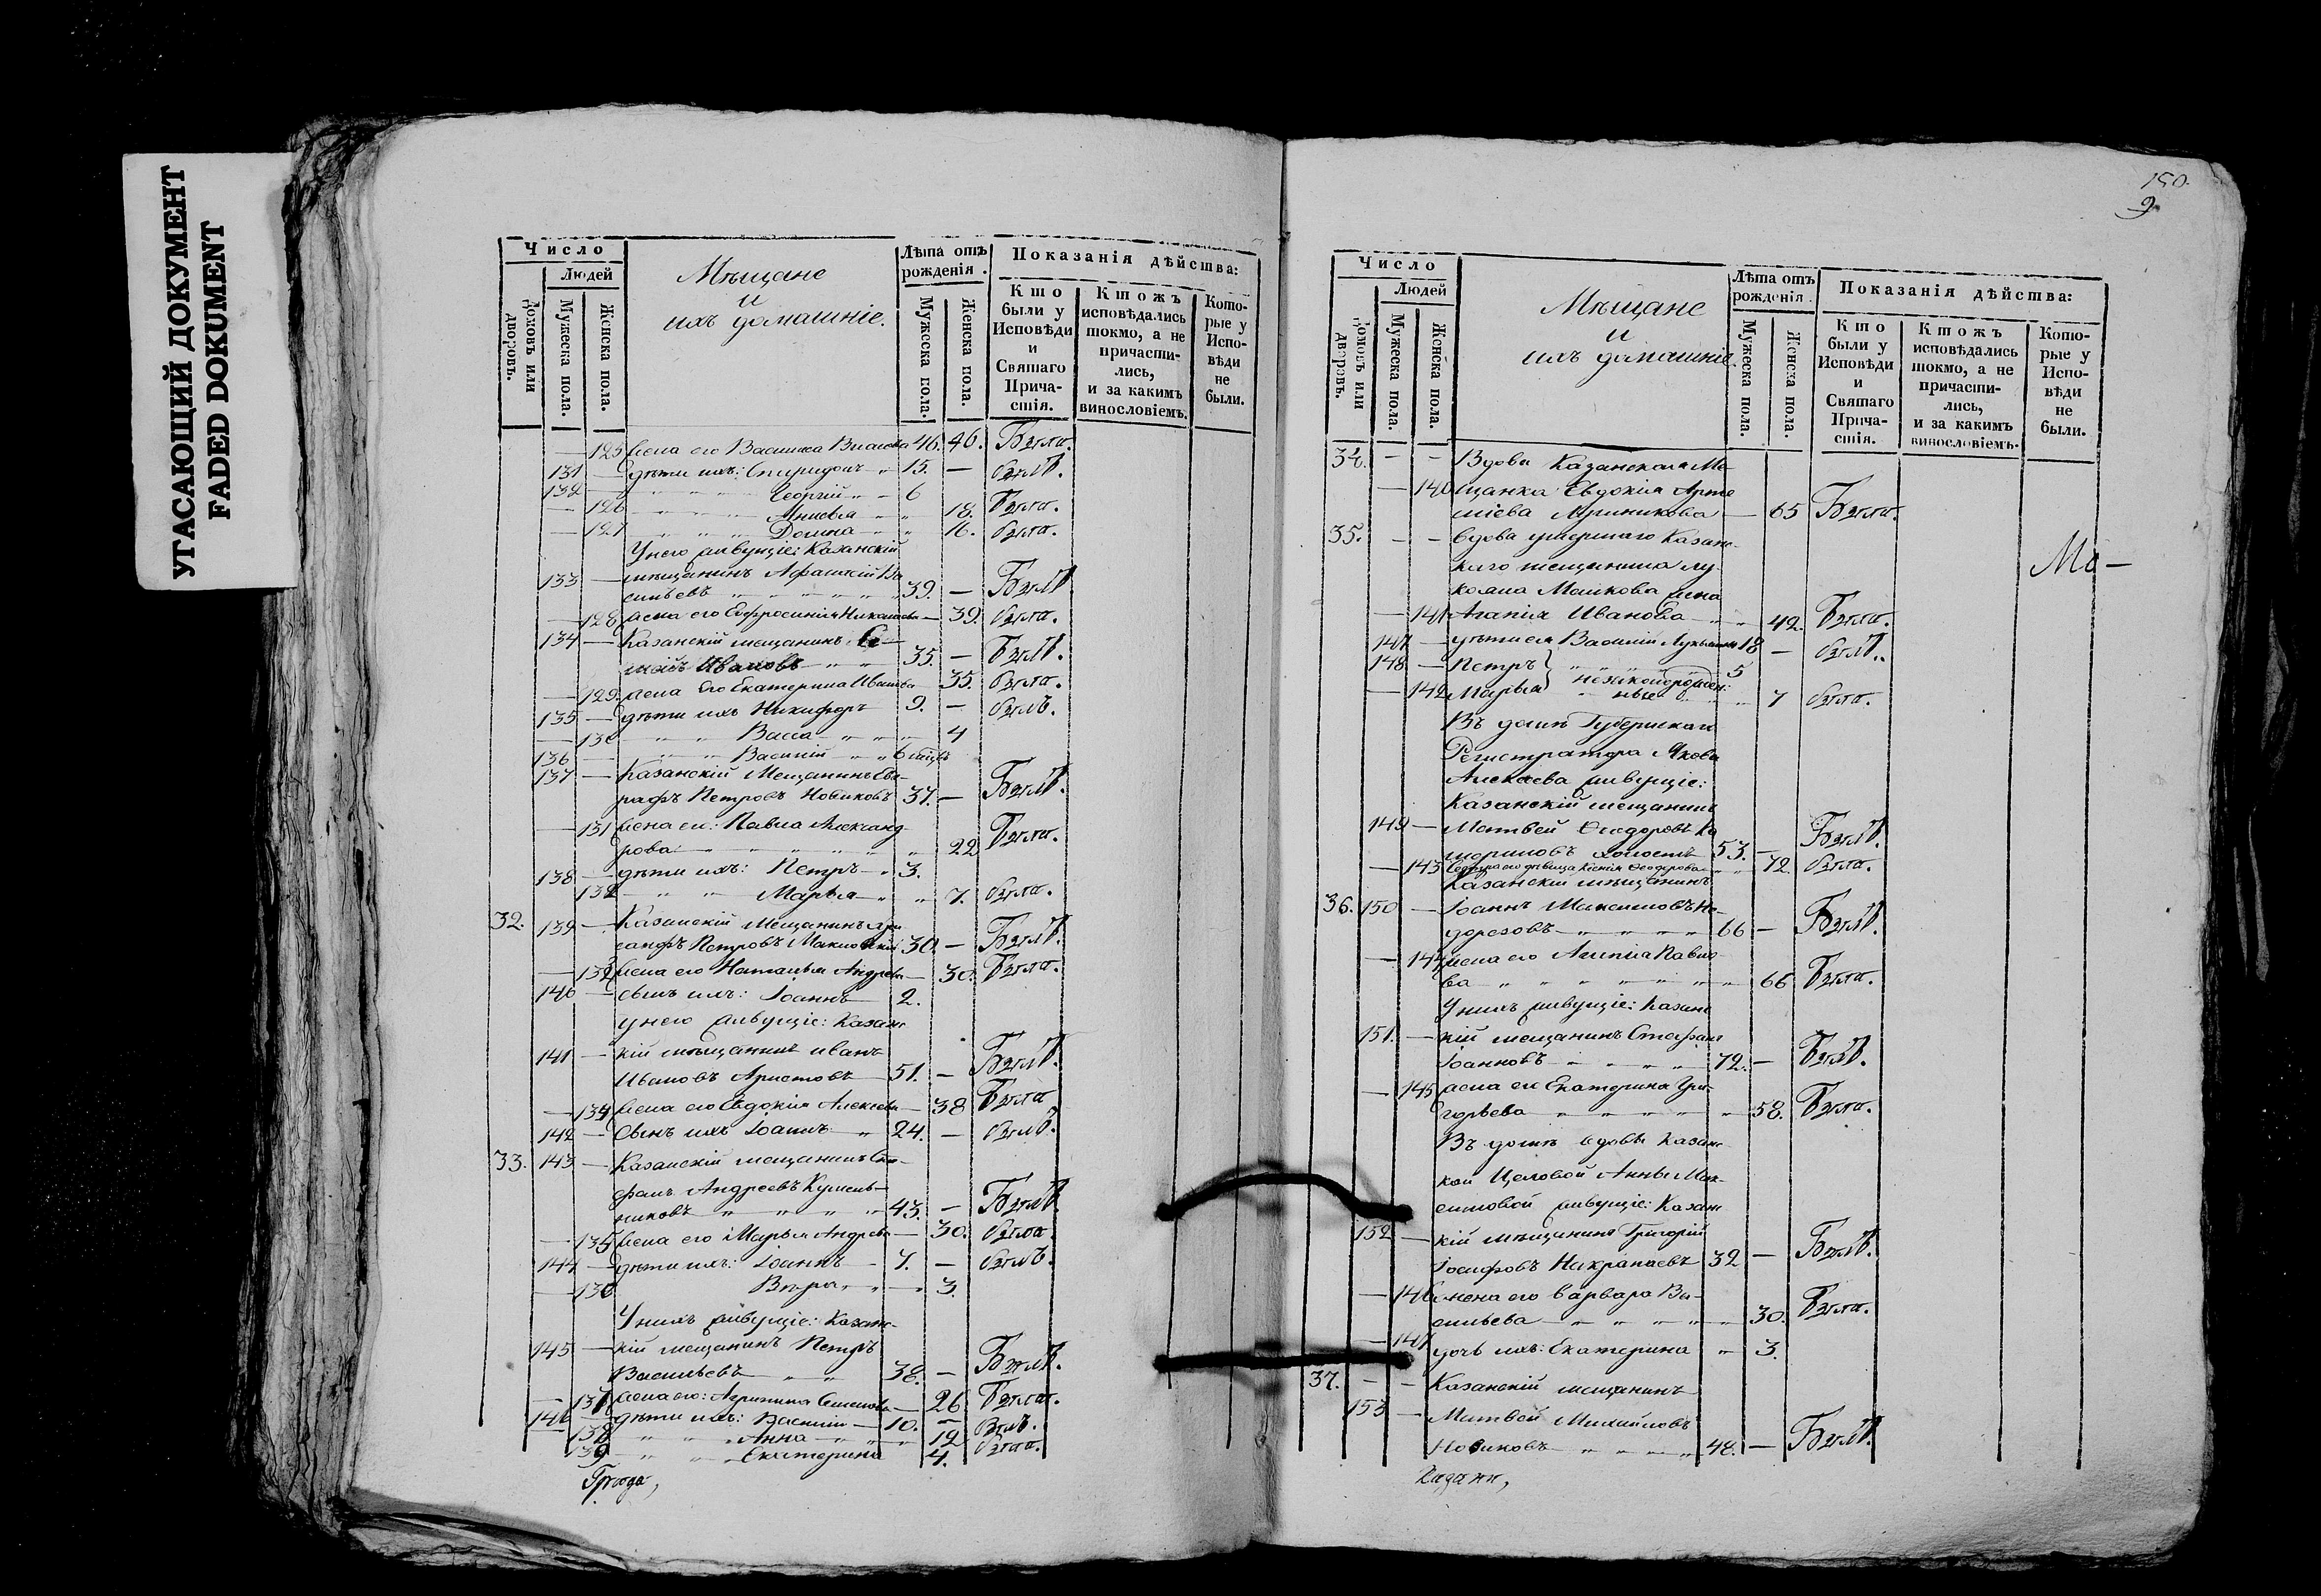 УГАСАЮЩИЙ ДОКУМЕНТ
FADED DOKUMENT
Число
Людей
Домовъ или дворовъ.
Мужеска пола.
Женска пола.
Мѣщане
и
ихъ домашніе.
Лѣта отъ рожденія.
Мужеска пола.
Женска пола.
Показанія дѣйства:
Кто были у Исповѣди и Святаго Причастія.
Ктожъ исповѣдались токмо, а не причастились, и за какимъ винословіемъ.
Которые у Исповѣди не были.
— 125 жена его Василиса 46. 46. Была.
131 — дѣти ихъ: Спиридонъ 15. — былъ.
132 — Георгій 6
— 126 18. Была.
— 127 Домна 16. была.
У него живущіе: Казанскій
133 — мѣщанинъ Ва
сильевъ 39. — Былъ
— 128 жена его Евфросинія 39. была.
134 — Казанскій мещанинъ
Ивановъ 35. — Былъ.
— 129 жена его Екатерина Иванова 35. была.
135 — дѣти ихъ Никифоръ 9. — былъ.
— 130 Васса 4
136 — Василій 6
137 — Казанскій Мещанинъ Ев-
графъ Петровъ Новиковъ 37. — Былъ.
— 131 жена ег: Павла Александ-
рова 22 Была.
138 — дѣти ихъ: Петръ 3.
132 Марья 7. была.
32. 139 — Казанскій Мещанинъ Хри
санфъ Петровъ 30. — Былъ.
жена его Наталья Андрева — 30. Была.
140 — сынъ ихъ: Іоаннъ 2.
у него живущіе: Казанс
141 — кій мѣщанинъ Иванъ
Ивановъ Аристовъ 51. — Былъ.
— 134 жена его Евдокія Алексева — 38 Была
142 — Сынъ ихъ Іоаннъ 24. — былъ.
33. 143 — Казанскій мещанинъ Сте-
фанъ Андреевъ
никовъ 43. — Былъ.
— 135 жена его Марья Андрева — 30. была.
144 — дѣти ихъ: Іоаннъ 7. — былъ.
— 136 Вѣра 3.
У нихъ живущіе: Казанс-
145 — кій мещанинъ Петръ
Васильевъ 38. — Былъ.
— 137 жена его: Агрипина Семенова — 26 Была.
146 — дѣти ихъ: Василій — 10. — Былъ.
138 Анна 12
139 Екатерина 4. была.
Города,
150.
9.
Число
Людей
Домовъ или дворовъ.
Мужеска пола.
Женска пола.
Мѣщане
и
ихъ домашніе.
Лѣта отъ рожденія.
Мужеска пола.
Женска пола.
Показанія дѣйства:
Кто были у Исповѣди и Святаго Причастія.
Ктожъ исповѣдались токмо, а не причастились, и за какимъ винословіемъ.
Которые у Исповѣди не были.
34. — — Вдова Казанская Ме
— 140 щанка Евдокія Арте
міева — 65 Была.
35. — — вдова умершаго Казанс-
каго мещанина Лу-
кояна Машкова жена
— 141 Агапія Иванова 42. Была.
147 — дѣти ея Василій Лукьяновъ 18 — былъ.
148 — Петръ } незаконорожден- 5
— 142 Марья } ные 7 была.
Въ домѣ Губернскаго
Регистратора Якова
Алексева живущіе:
Казанскій мещанинъ
149 — Матвей Ѳеодоровъ Ка
холостъ 53. — Былъ
— 143 Сестра его дѣвица Ксенія Ѳеодорова 72. была.
Казанскій мѣщанинъ
36. 150 — Іоаннъ Максимовъ Не-
дорезовъ 66 — Былъ.
— 144 жена его Павло-
ва 66 Была.
У нихъ живущіе: Казанс
151. — кій мещанинъ Стефанъ
Іоанновъ 72. — Былъ.
— 145 жена его Екатерина Гри-
горьева 58. Была.
Въ домѣ вдовы Казанс-
кой Цеховой Анны Мак-
симовой живущіе: Казанс
152 — кій мѣщанинъ Григорій
Іосифовъ 32 — Былъ.
— 146 жена его Варвара Ва-
сильева 30. Была.
— 147 дочь ихъ: Екатерина 3.
37. — — Казанскій мещанинъ
153 — Матвей Михайловъ
Новиковъ 48. — Былъ.
Казани,